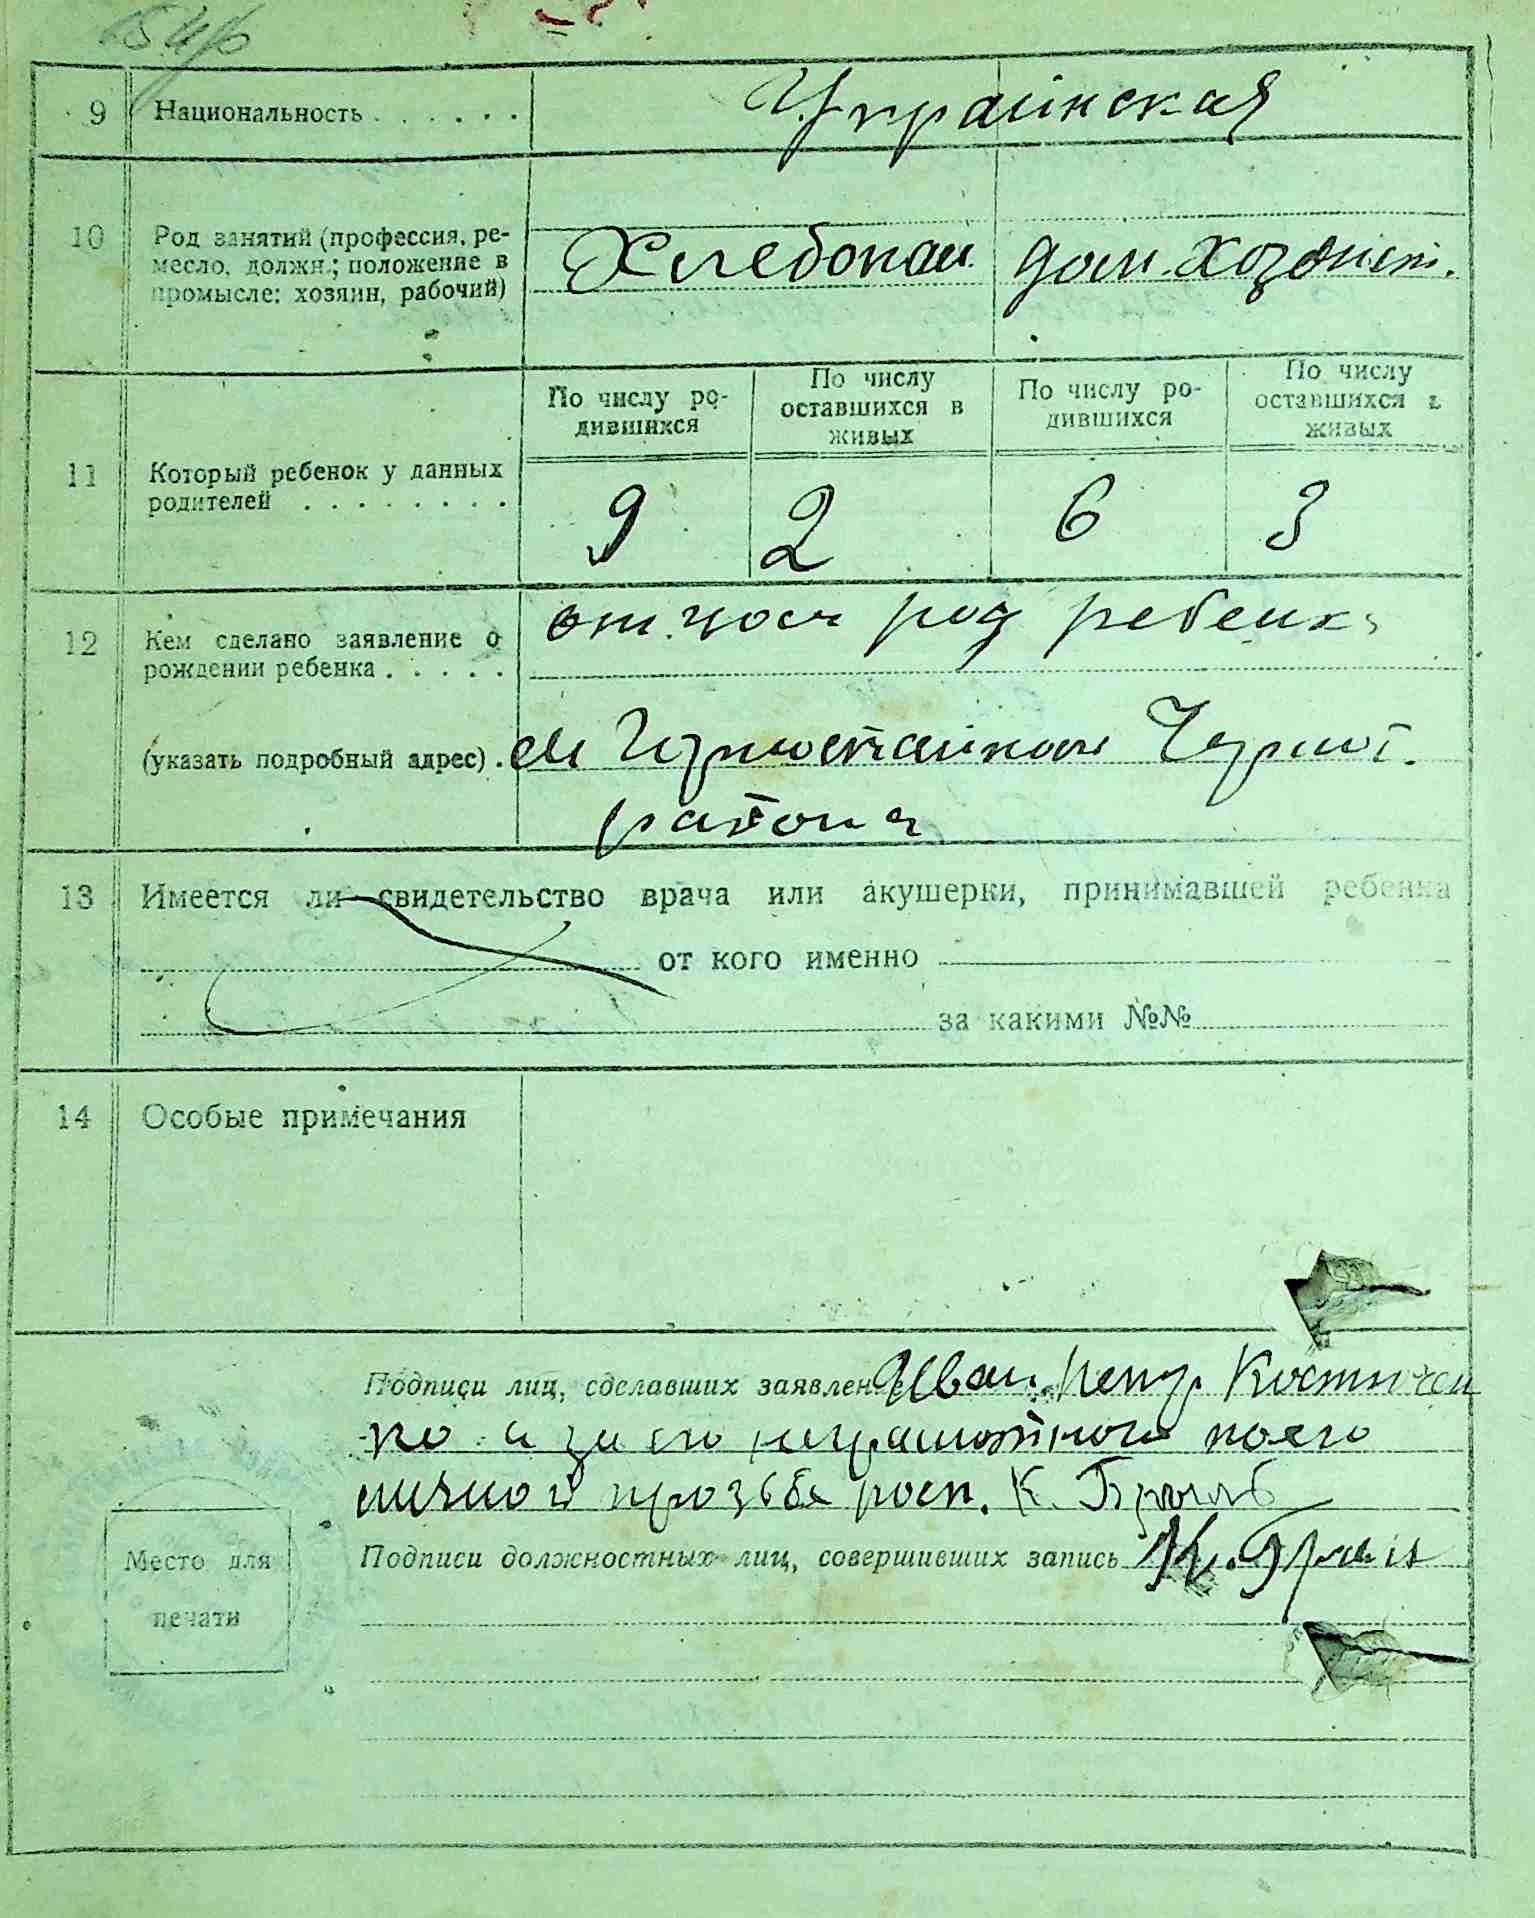 9 Национальность . . . . . . Украінская
10 Род занятий (профессия, ре-
месло, должн.; положение в
промысле: хозяин, рабочий)
Хлебопаш. дом. Хозяист.
По числу ро-
дившихся
По числу
оставшихся в
живых
По числу ро-
дившихся
По числу
оставшихся в
живых
11 Который ребенок у данных
родителей . . . . . . . .
9 2 6 3
12 Кем сделано заявление о
рождении ребенка . . . . .
отцом род ребенка
(указать подробный адрес) .
района
13 Имеется ли свидетельство врача или акушерки, принимавшей ребенка
от кого именно
за какими №№
14 Особые примечания
Подписи лиц, сделавших заявлен Иван Петр Костючен
ко а за его неграмотного по его
личной прозьбе росп. К.
Подписи должностных лиц, совершивших запись
Место для
печати